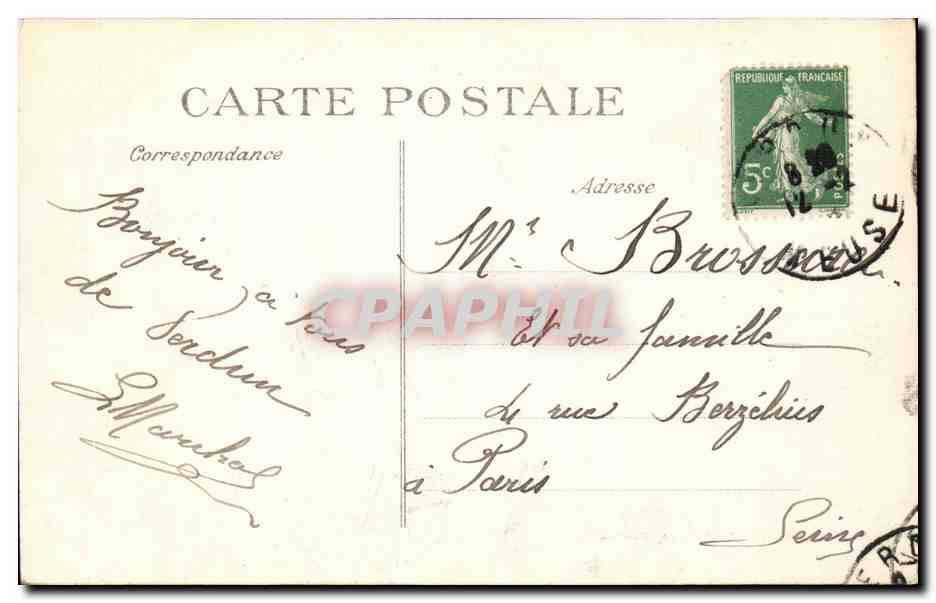 CARTE POSTALE
Correspondance
Bonjour à tous
de Verdun
Adresse
Mr. Brossard
Et sa famille
4 rue Berzélius
à Paris
Seine
REPUBLIQUE FRANÇAISE
5c
POSTES
MEUSE
CPAPHIL